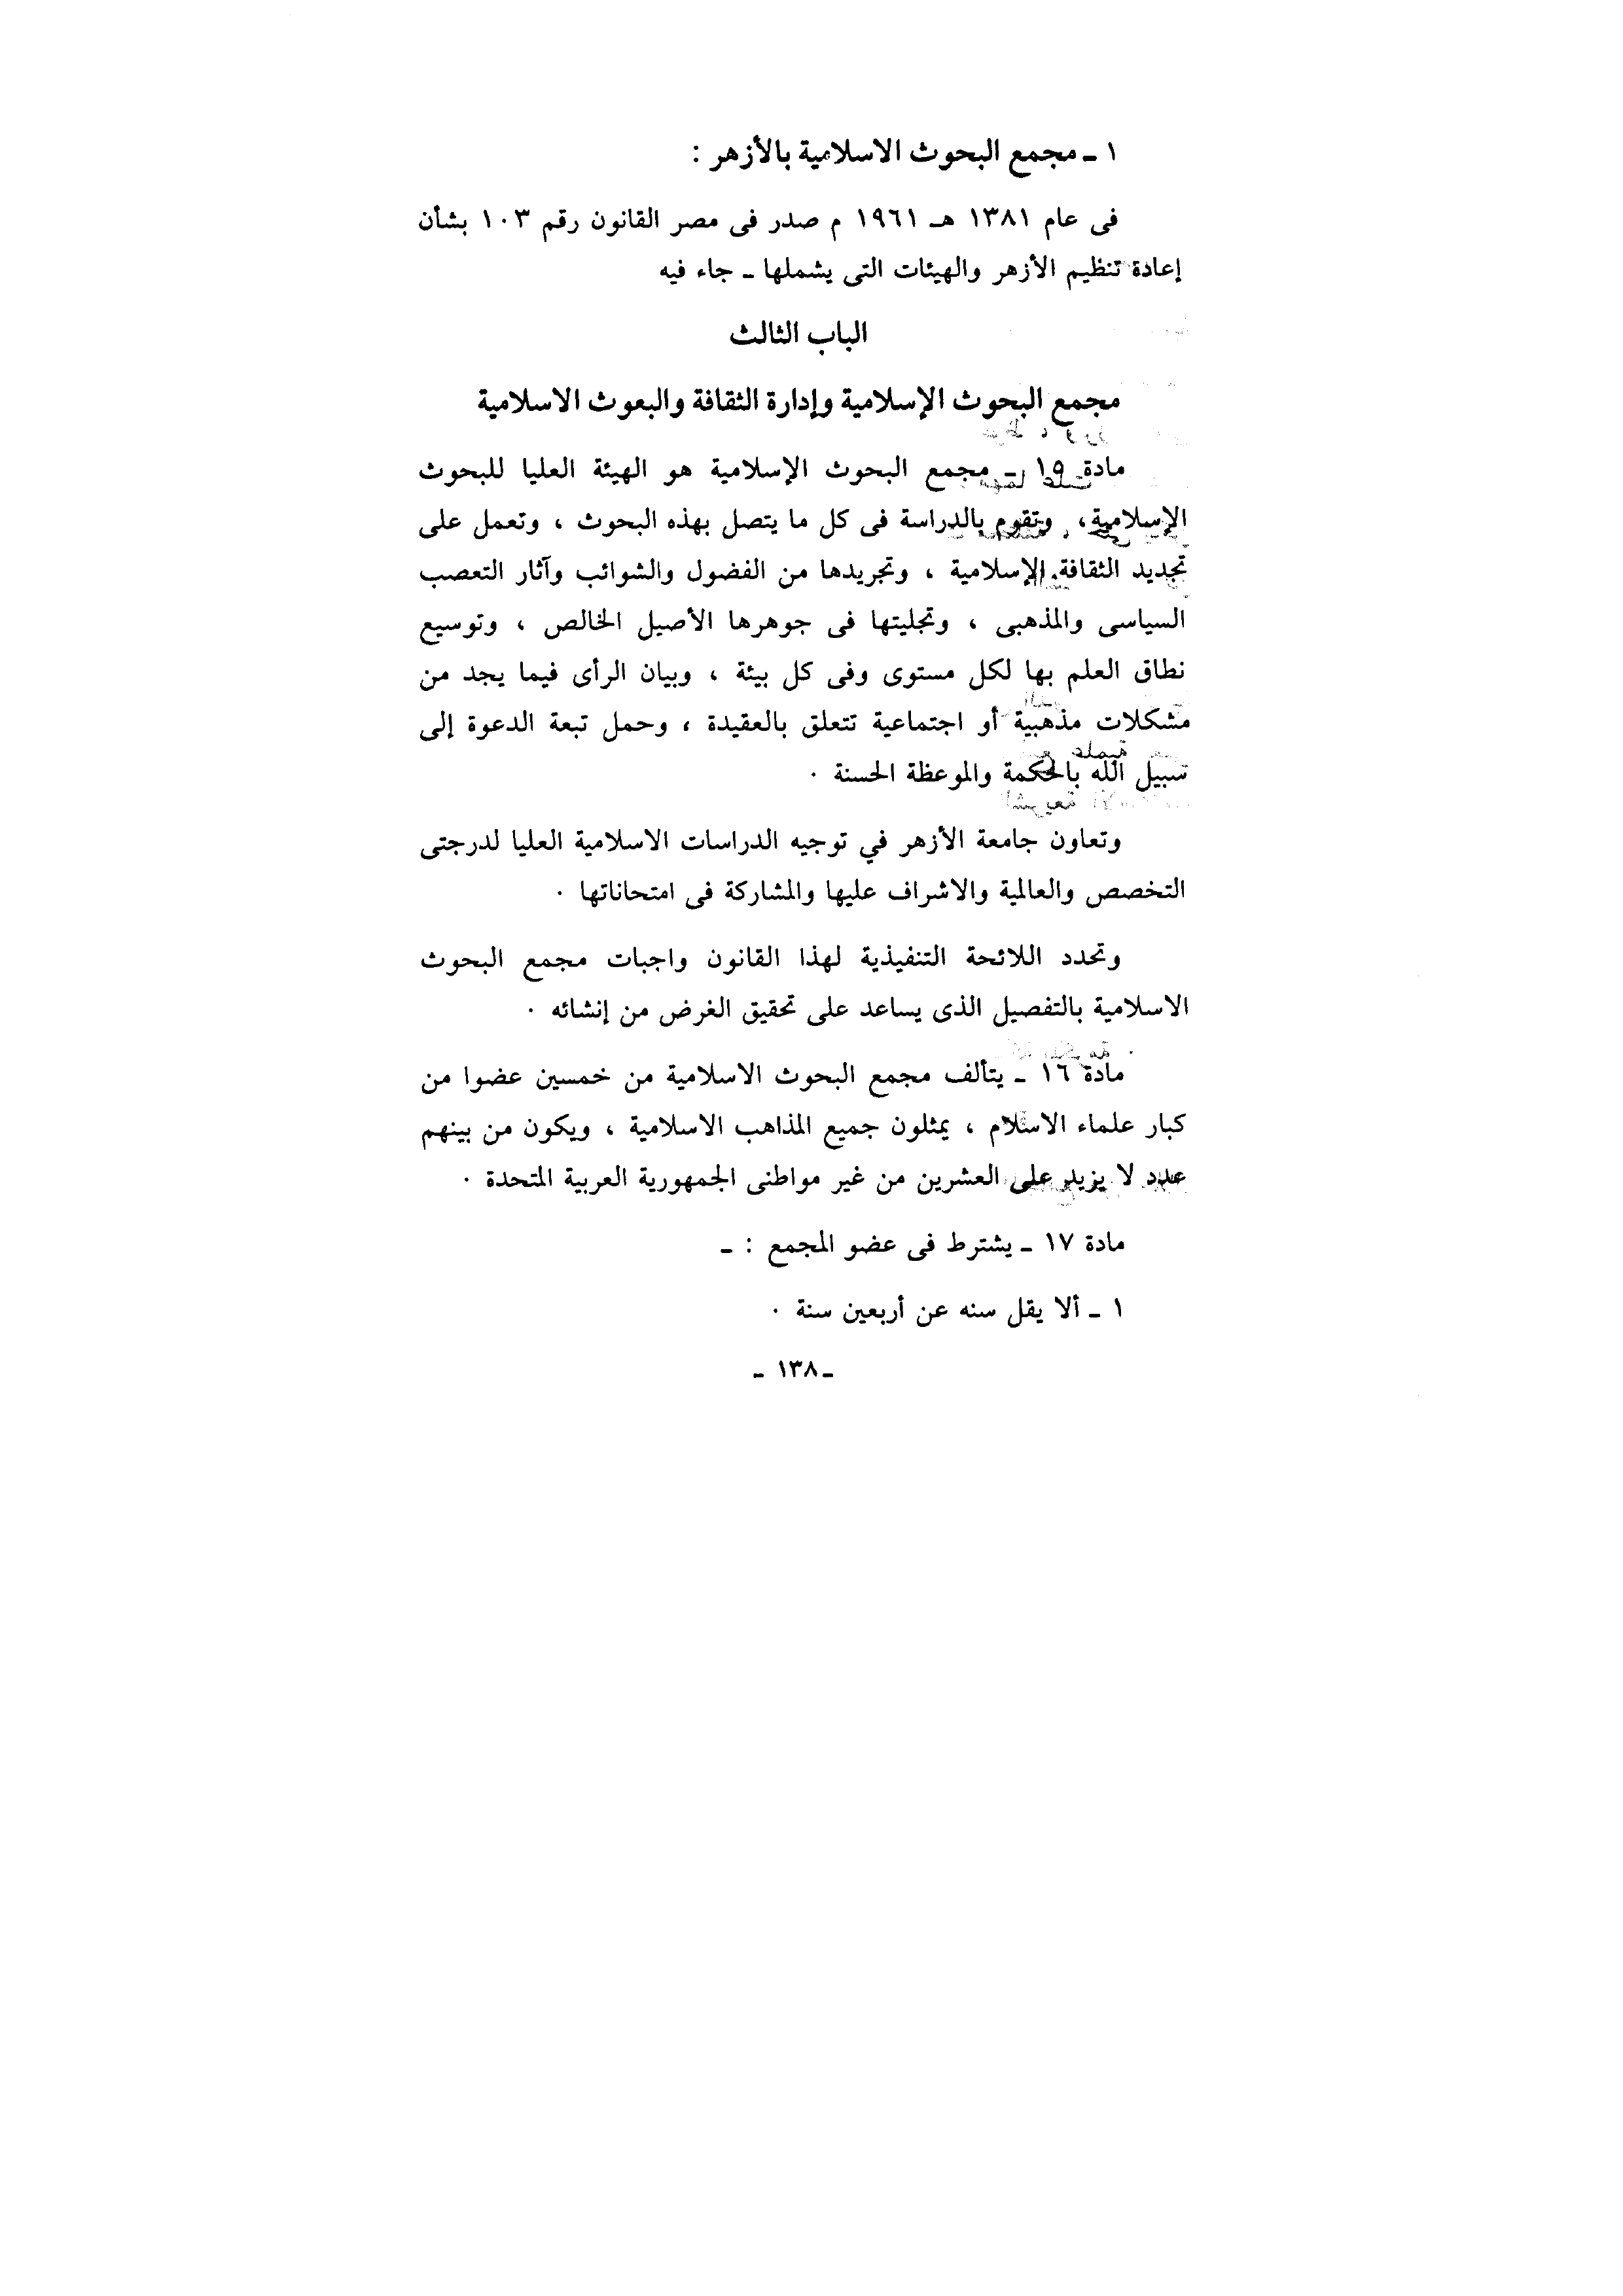 ١ ـ مجمع البحوث الاسلامية بالأزهر :
فى عام ١٣٨١ هـ ١٩٦١ م صدر فى مصر القانون رقم ١٠٣ بشأن
إعادة تنظيم الأزهر والهيئات التى يشملها ـ جاء فيه
الباب الثالث
مجمع البحوث الإسلامية وإدارة الثقافة والبعوث الاسلامية
مادة ١٥ ـ مجمع البحوث الإسلامية هو الهيئة العليا للبحوث
الإسلامية ، وتقوم بالدراسة فى كل ما يتصل بهذه البحوث ، وتعمل على
تجديد الثقافة الإسلامية ، وتجريدها من الفضول والشوائب وآثار التعصب
السياسى والمذهبى ، وتجليتها فى جوهرها الأصيل الخالص ، وتوسيع
نطاق العلم بها لكل مستوى وفى كل بيئة ، وبيان الرأى فيما يجد من
مشكلات مذهبية أو اجتماعية تتعلق بالعقيدة ، وحمل تبعة الدعوة إلى
سبيل الله بالحكمة والموعظة الحسنة ٠
وتعاون جامعة الأزهر في توجيه الدراسات الاسلامية العليا لدرجتى
التخصص والعالمية والاشراف عليها والمشاركة فى امتحاناتها ٠
وتحدد اللائحة التنفيذية لهذا القانون واجبات مجمع البحوث
الاسلامية بالتفصيل الذى يساعد على تحقيق الغرض من إنشائه ٠
مادة ١٦ ـ يتألف مجمع البحوث الاسلامية من خمسين عضوا من
كبار علماء الاسلام ، يمثلون جميع المذاهب الاسلامية ، ويكون من بينهم
عدد لا يزيد على العشرين من غير مواطنى الجمهورية العربية المتحدة ٠
مادة ١٧ ـ يشترط فى عضو المجمع : ـ
١ ـ ألا يقل سنه عن أربعين سنة ٠
ـ ١٣٨ ـ